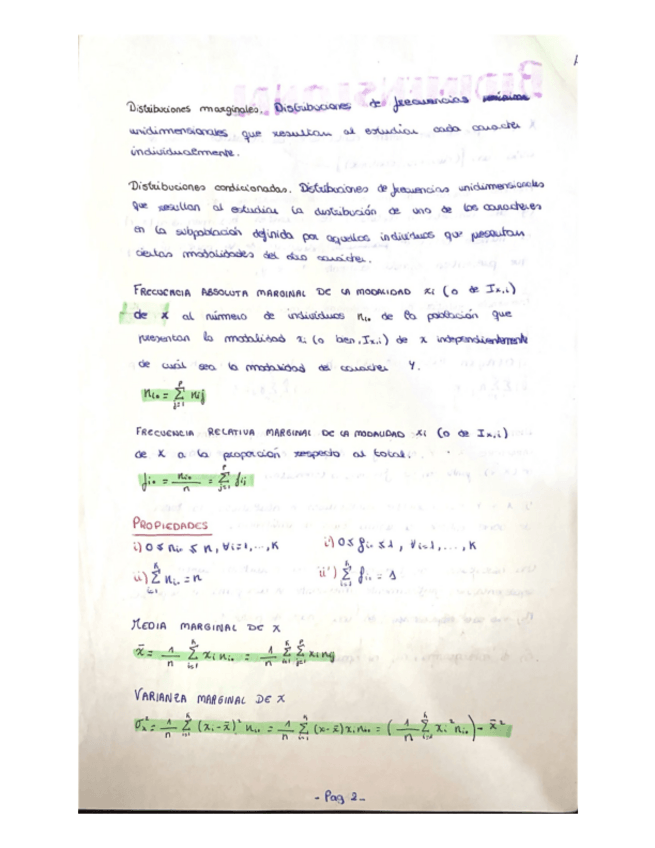 Distribuciones marginales. Distribuciones de frecuencias
unidimensionales que resultan al estudiar cada caracter
individualmente.
Distribuciones condicionadas. Distribuciones de frecuencias unidimensionales
que resultan al estudiar la distribución de uno de los caracteres
en la subpoblación definida por aquellos individuos que presentan
ciertas modalidades del otro caracter.
FRECUENCIA ABSOLUTA MARGINAL DE LA MODALIDAD xi (o de Ix,i)
de X al número de individuos ni. de la población que
presentan la modalidad xi (o bien, Ix,i) de x independientemente
de cuál sea la modalidad del caracter Y.
ni. = Σ(j=1, p) nij
FRECUENCIA RELATIVA MARGINAL DE LA MODALIDAD xi (o de Ix,i)
de X a la proporción respecto al total.
fi. = ni./n = Σ(j=1, p) fij
PROPIEDADES
i) 0 ≤ ni. ≤ n, ∀i=1,..., K i') 0 ≤ fi. ≤ 1, ∀i=1,..., K
ii) Σ(i=1, k) ni. = n ii') Σ(i=1, k) fi. = 1
MEDIA MARGINAL DE X
x̄ = 1/n Σ(i=1, k) xi ni. = 1/n Σ(i=1, k) Σ(j=1, p) xi nij
VARIANZA MARGINAL DE X
σx² = 1/n Σ(i=1, k) (xi - x̄)² ni. = 1/n Σ(i=1, k) (x - x̄) xi ni. = (1/n Σ(i=1, k) xi² ni.) - x̄²
- Pag 2 -